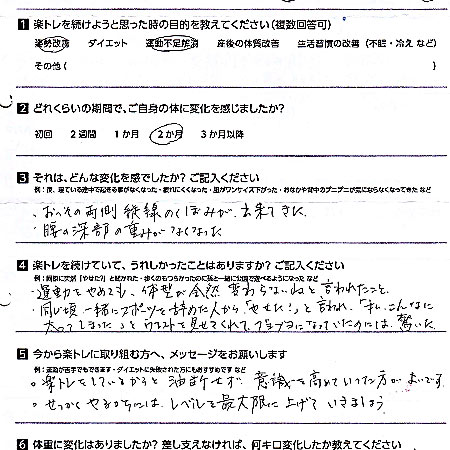 1 楽トレを続けようと思った時の目的を教えてください(複数回答可)
姿勢改善 ダイエット 運動不足解消 産後の体質改善 生活習慣の改善(不眠・冷え など)
その他( )
2 どれくらいの期間で、ご自身の体に変化を感じましたか?
初回 2週間 1か月 2か月 3か月以降
3 それは、どんな変化を感でしたか? ご記入ください
例:夜、寝ている途中で起きる事がなくなった・疲れにくくなった・服がワンサイズ下がった・おなかや背中のプニプニが気にならなくなってきた など
・おへその両側 縦線のくぼみが、出来てきた
・腰の深部の重みがなくなった
4 楽トレを続けていて、うれしかったことはありますか? ご記入ください
・運動をやめても、体型が全然 変わらないねと言われたこと。
・同い頃 一緒にスポーツを辞めた人から「やせた!」と言われ、「私、こんなに
太ってしまった」とウエストを見せてくれて、プヨプヨになっていたのには、驚いた
5 今から楽トレに取り組む方へ、メッセージをお願いします
例:運動が苦手でもできます・ダイエットに失敗された方にもおすすめです など
○楽トレをしているからと油断せず、意識を高めていった方がよいです。
・せっかくやるからには、レベルを最大限に上げていきましょう
6 体重に変化はありましたか? 差し支えなければ、何キロ変化したか教えてください